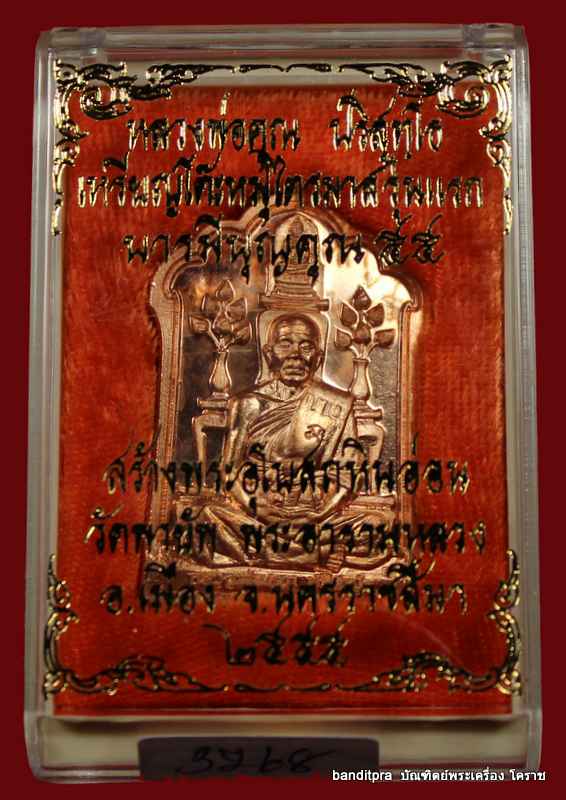 หลวงพ่อคูณ ปริสุทฺโธ
เหรียญโต๊ะหมู่ไตรมาส รุ่นแรก
บารมีบุญคุณ ๕๕
สร้างพระอุโบสถหินอ่อน
วัดพายัพ พระอารามหลวง
อ.เมือง จ.นครราชสีมา
๒๕๕๕
3768
banditpra บัณฑิตย์พระเครื่อง โคราช